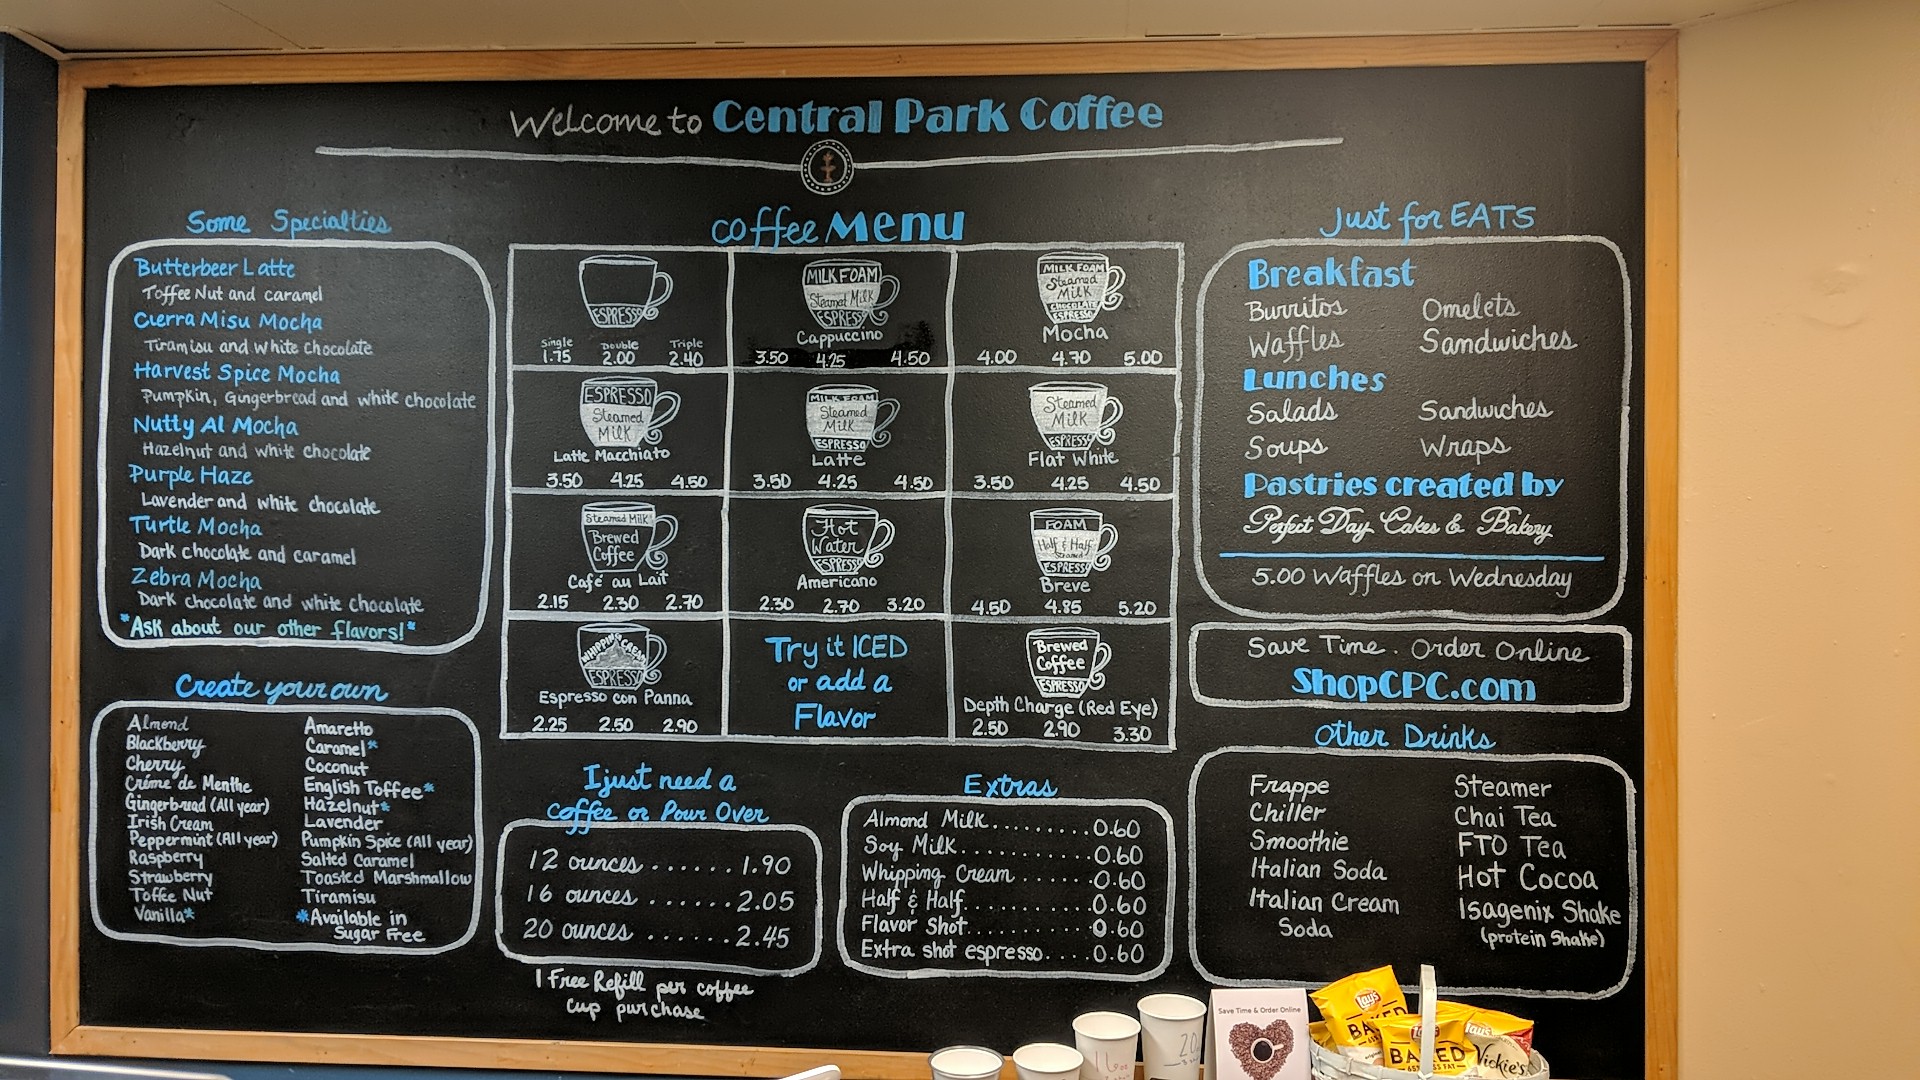 Welcome to Central Park Coffee
Some Specialties
Butterbeer Latte
Toffee Nut and caramel
Cierra Misu Mocha
Tiramisu and White Chocolate
Harvest Spice Mocha
Pumpkin, Gingerbread and white chocolate
Nutty Al Mocha
Hazelnut and white chocolate
Purple Haze
Lavender and white chocolate
Turtle Mocha
Dark chocolate and caramel
Zebra Mocha
Dark chocolate and white chocolate
*Ask about our other flavors!*
Create your own
Almond
Blackberry
Cherry
Créme de Menthe
Gingerbread (All year)
Irish Cream
Peppermint (All year)
Raspberry
Strawberry
Toffee Nut
Vanilla*
Amaretto
Caramel*
Coconut
English Toffee*
Hazelnut*
Lavender
Pumpkin Spice (All year)
Salted Caramel
Toasted Marshmallow
Tiramisu
*Available in
Sugar Free
coffee Menu
ESPRESSO
Single Double Triple
1.75 2.00 2.40
MILK FOAM
Steamed Milk
ESPRESSO
Cappuccino
3.50 4.25 4.50
MILK FOAM
Steamed
Milk
CHOCOLATE
ESPRESSO
Mocha
4.00 4.70 5.00
ESPRESSO
Steamed
Milk
Latte Macchiato
3.50 4.25 4.50
MILK FOAM
Steamed
Milk
ESPRESSO
Latte
3.50 4.25 4.50
Steamed
Milk
ESPRESSO
Flat White
3.50 4.25 4.50
Steamed Milk
Brewed
Coffee
Café au Lait
2.15 2.30 2.70
Hot
Water
ESPRESSO
Americano
2.30 2.70 3.20
FOAM
Half & Half
Steamed
ESPRESSO
Breve
4.50 4.85 5.20
WHIPPING CREAM
ESPRESSO
Espresso con Panna
2.25 2.50 2.90
Try it ICED
or add a
Flavor
Brewed
Coffee
ESPRESSO
Depth Charge (Red Eye)
2.50 2.90 3.30
I just need a
coffee or Pour Over
12 ounces ...... 1.90
16 ounces ...... 2.05
20 ounces ...... 2.45
1 Free Refill per coffee
cup purchase
Extras
Almond Milk.........0.60
Soy Milk............0.60
Whipping Cream ......0.60
Half & Half...........0.60
Flavor Shot...........0.60
Extra shot espresso....0.60
Just for EATS
Breakfast
Burritos Omelets
Waffles Sandwiches
Lunches
Salads Sandwiches
Soups Wraps
Pastries created by
Perfect Day Cakes & Bakery
5.00 Waffles on Wednesday
Save Time. Order Online
ShopCPC.com
Other Drinks
Frappe
Chiller
Smoothie
Italian Soda
Italian Cream
Soda
Steamer
Chai Tea
FTO Tea
Hot Cocoa
Isagenix Shake
(protein Shake)
Save Time & Order Online
16oz
20
Lay's
BAKED
Lay's
BAKED
Lay's
Vickie's